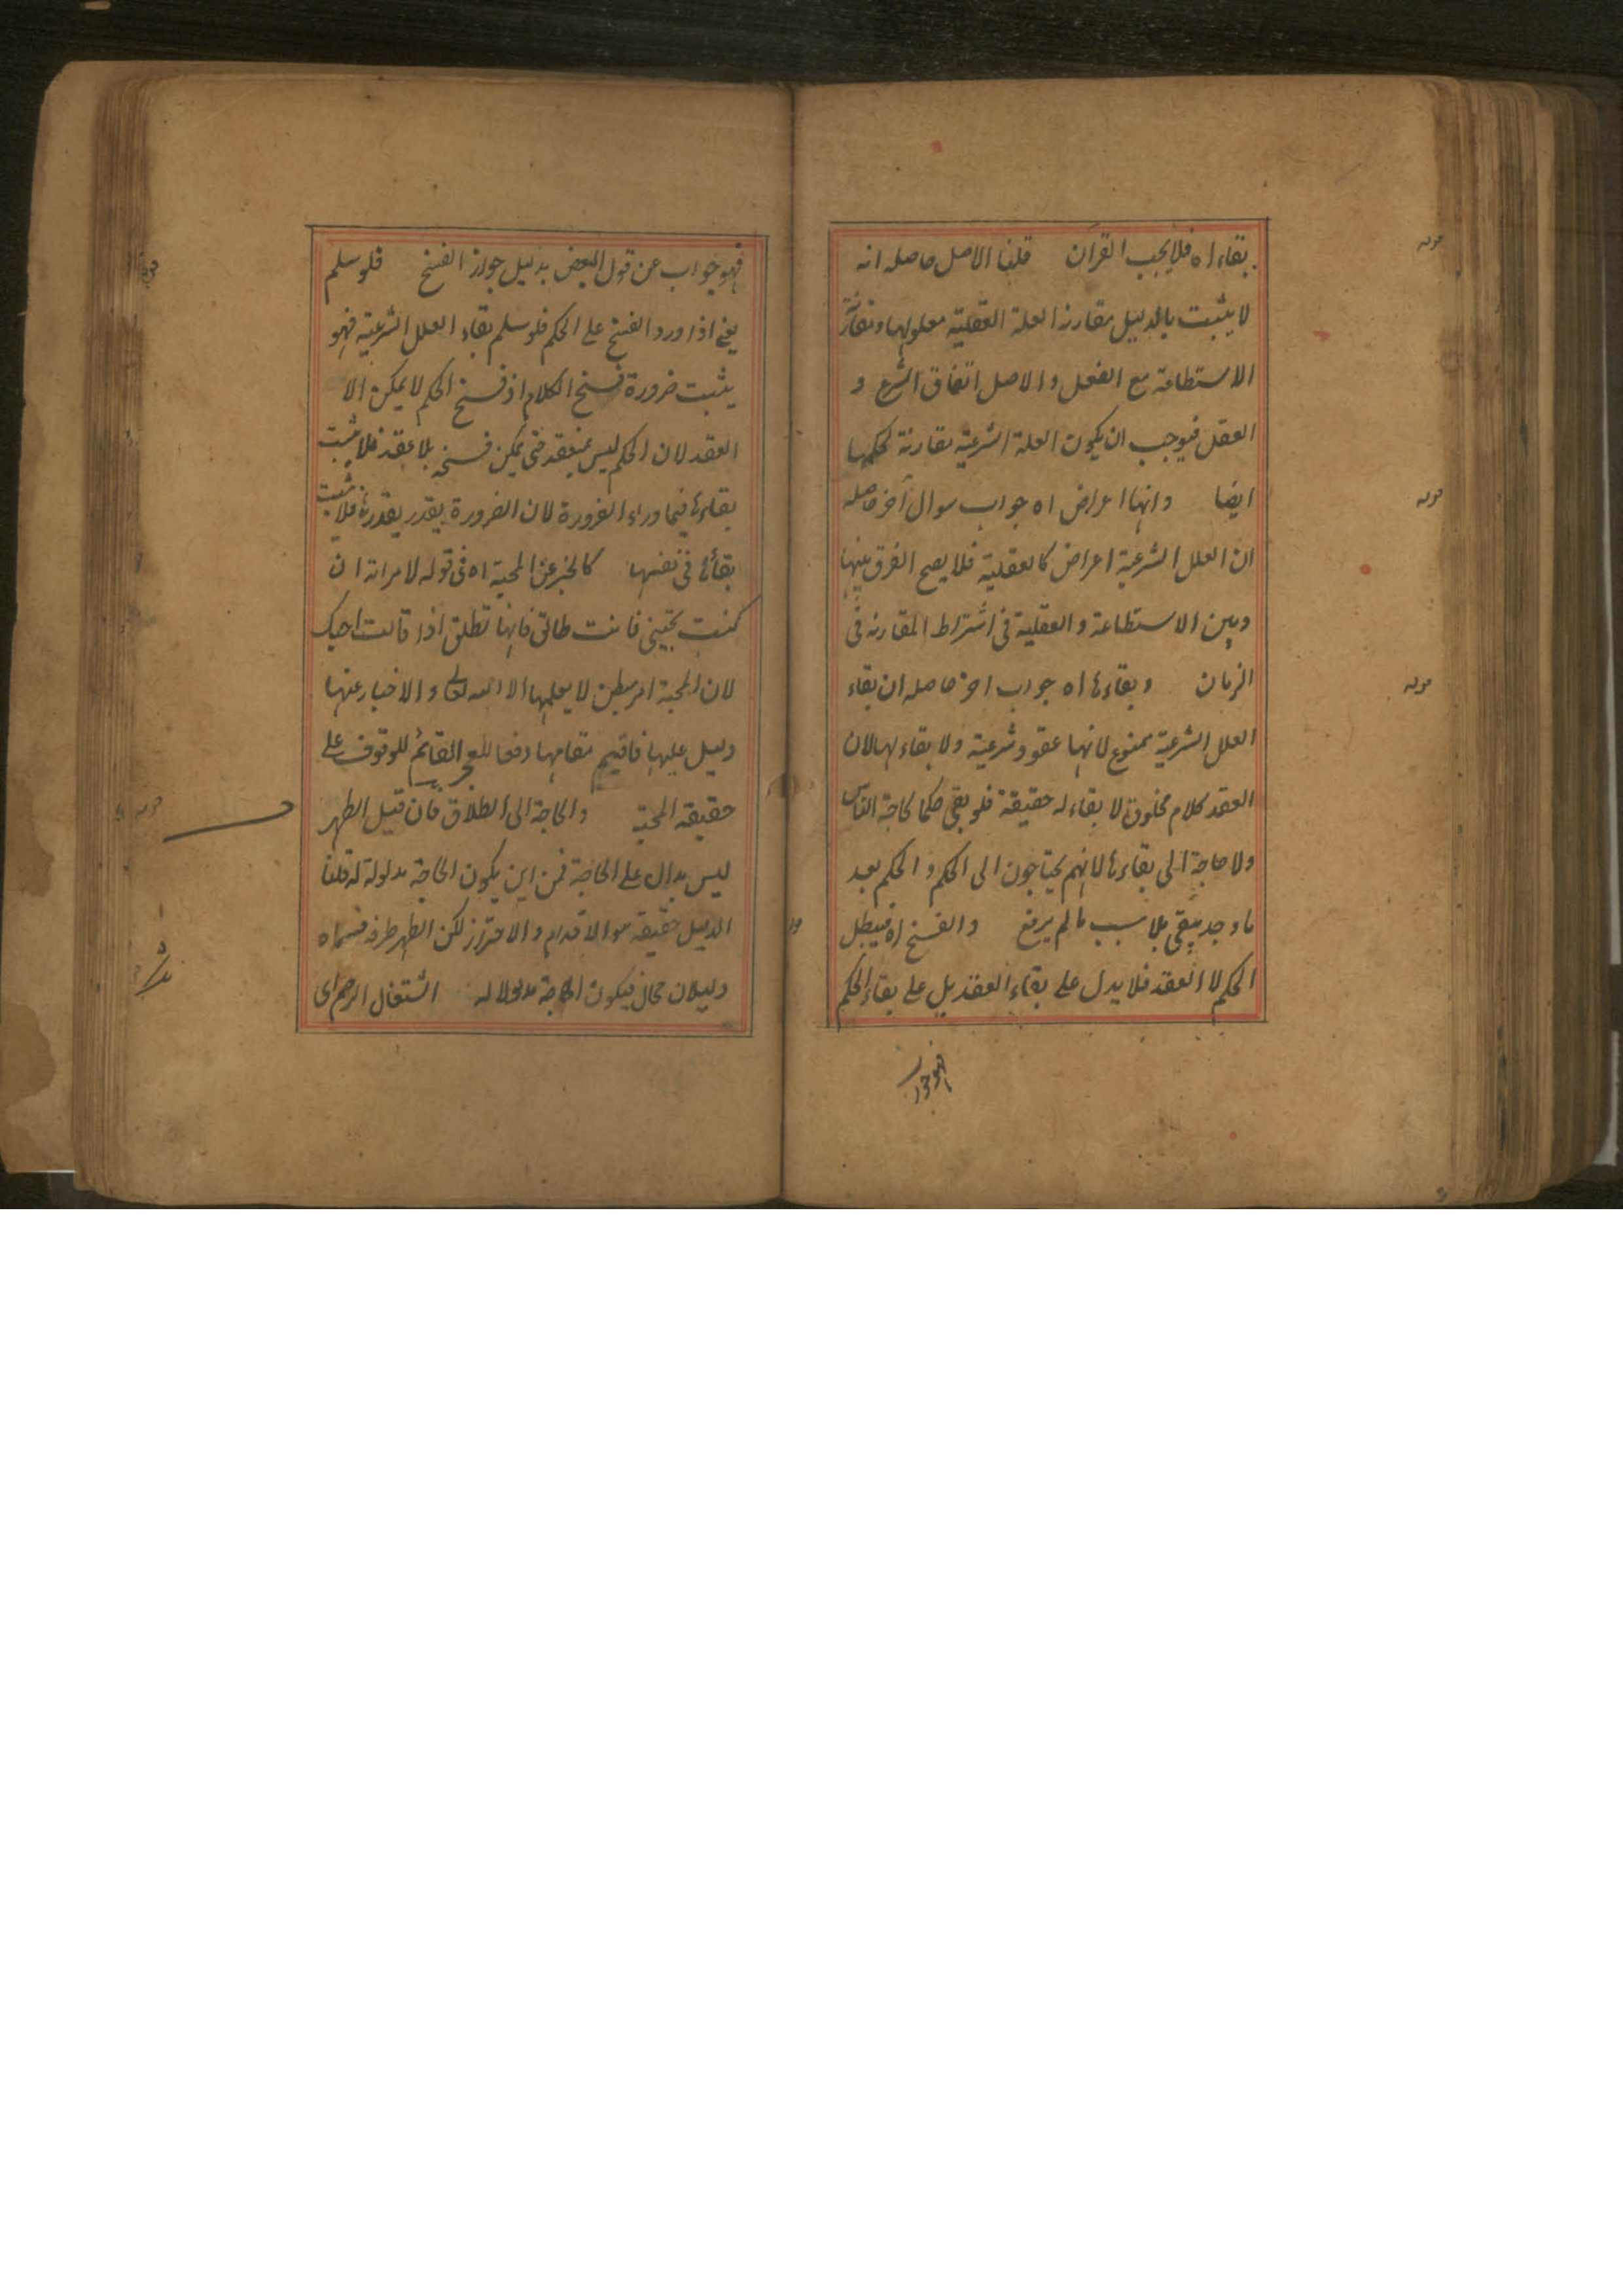 بقاء اه فلا يجب القران قلنا الاصل حاصله انه
لا يثبت بالدليل مقارنة العلة العقلية معلولها ومقارنة
الاستطاعة مع الفعل والاصل اتفاق الشرع و
العقل فيوجب ان يكون العلة الشرعية مقارنة لحكمها
ايضا وانها اعراض اه جواب سوال آخر حاصله
ان العلل الشرعية اعراض كالعقلية فلا يصح الفرق بينها
وبين الاستطاعة والعقلية فى اشتراط المقارنة فى
الزمان وبقاءها اه جواب اخر حاصله ان بقاء
العلل الشرعية ممنوع لانها عقود شرعية ولا بقاء لها لان
العقد كلام مخلوق لا بقاء له حقيقة فلو بقى حكما لحاجة الناس
ولا حاجة الى بقاءها لانهم يحتاجون الى الحكم والحكم بعد
ما وجد يبقى بلا سبب ما لم يرفع والفسخ اه فيبطل
الحكم لا العقد فلا يدل على بقاء العقد بل على بقاء الحكم
فهو جواب
قوله
قوله
قوله
فهو جواب عن قول البعض بدليل جواز الفسخ فلو سلم
يعنى اذا ورد الفسخ على الحكم فلو سلم بقاء العلل الشرعية فهو
يثبت ضرورة فسخ الكلام اذ فسخ الحكم لا يمكن الا
العقد لان الحكم ليس بمنعقد حتى يمكن فسخه بلا عقد فلا يثبت
بقاءها فيما وراء الضرورة لان الضرورة يقدر بقدرها فلا يثبت
بقائها فى نفسها كالخبر عن المحبة اه فى قوله لامراته ان
كنت تحبينى فانت طالق فانها تطلق اذا قالت احبك
لان المحبة امر بطن لا يعلمها الا الله تعالى والاخبار عنها
دليل عليها فاقيم مقامها دفعا للعجز القائم للوقوف على
حقيقة المحبة والحاجة الى الطلاق فان قيل الطهر
ليس بدال على الحاجة فمن اين يكون الحاجة مدلولة له قلنا
الدليل حقيقة هو الاقدام والاحتراز لكن الطهر ظرفه فسماه
دليلان محال فيكون الحاجة مدلولا له اشتغال الرحم اى
قوله
قوله